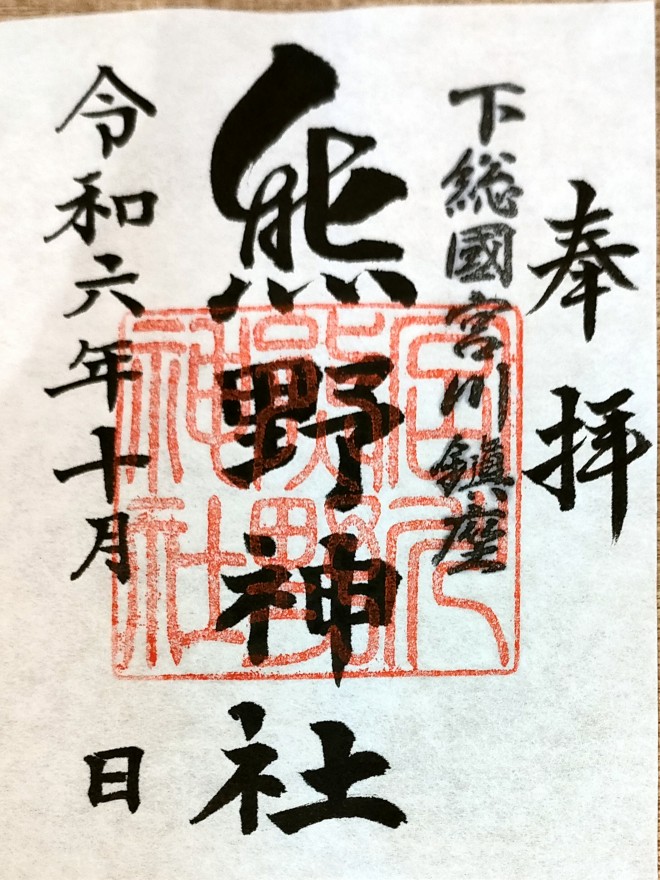 奉拝
下総國宮川鎮座
熊野神社
令和六年十月 日
宮川
熊野
神社